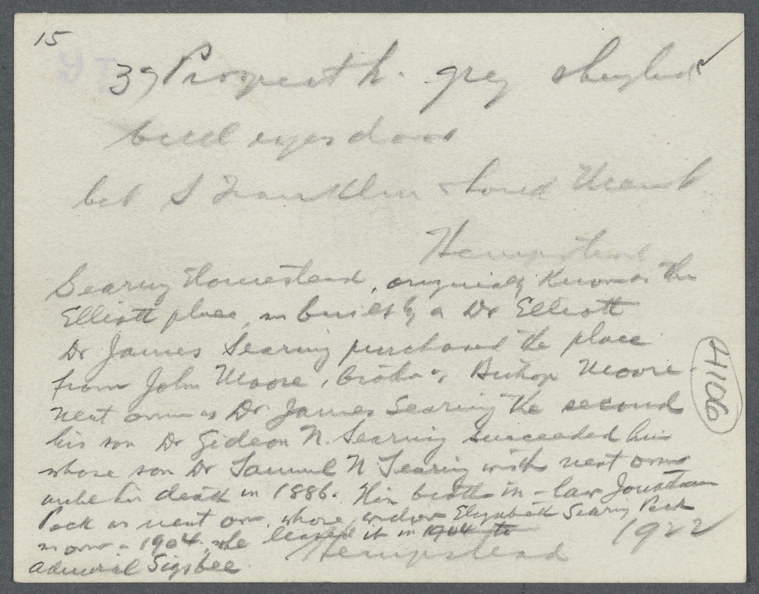 15
39 Prospect h. grey shingled
bet S Franklin &
Hempstead
Searing Homestead, originally known as the
Elliott place, as built by a Dr Elliott
Dr James Searing purchased the place
from John Moore, brother of Bishop Moore.
next owner Dr James Searing the second
his son Dr Gideon N. Searing succeeded him
whose son Dr Samuel N Searing with next owner
until his death in 1886. His brother in-law Jonathan
Peck as next owner, whose widow Elizabeth Searing Peck
in 1904 she leased it in 1904 to
Admiral Sigsbee.
Hempstead 1922
H106